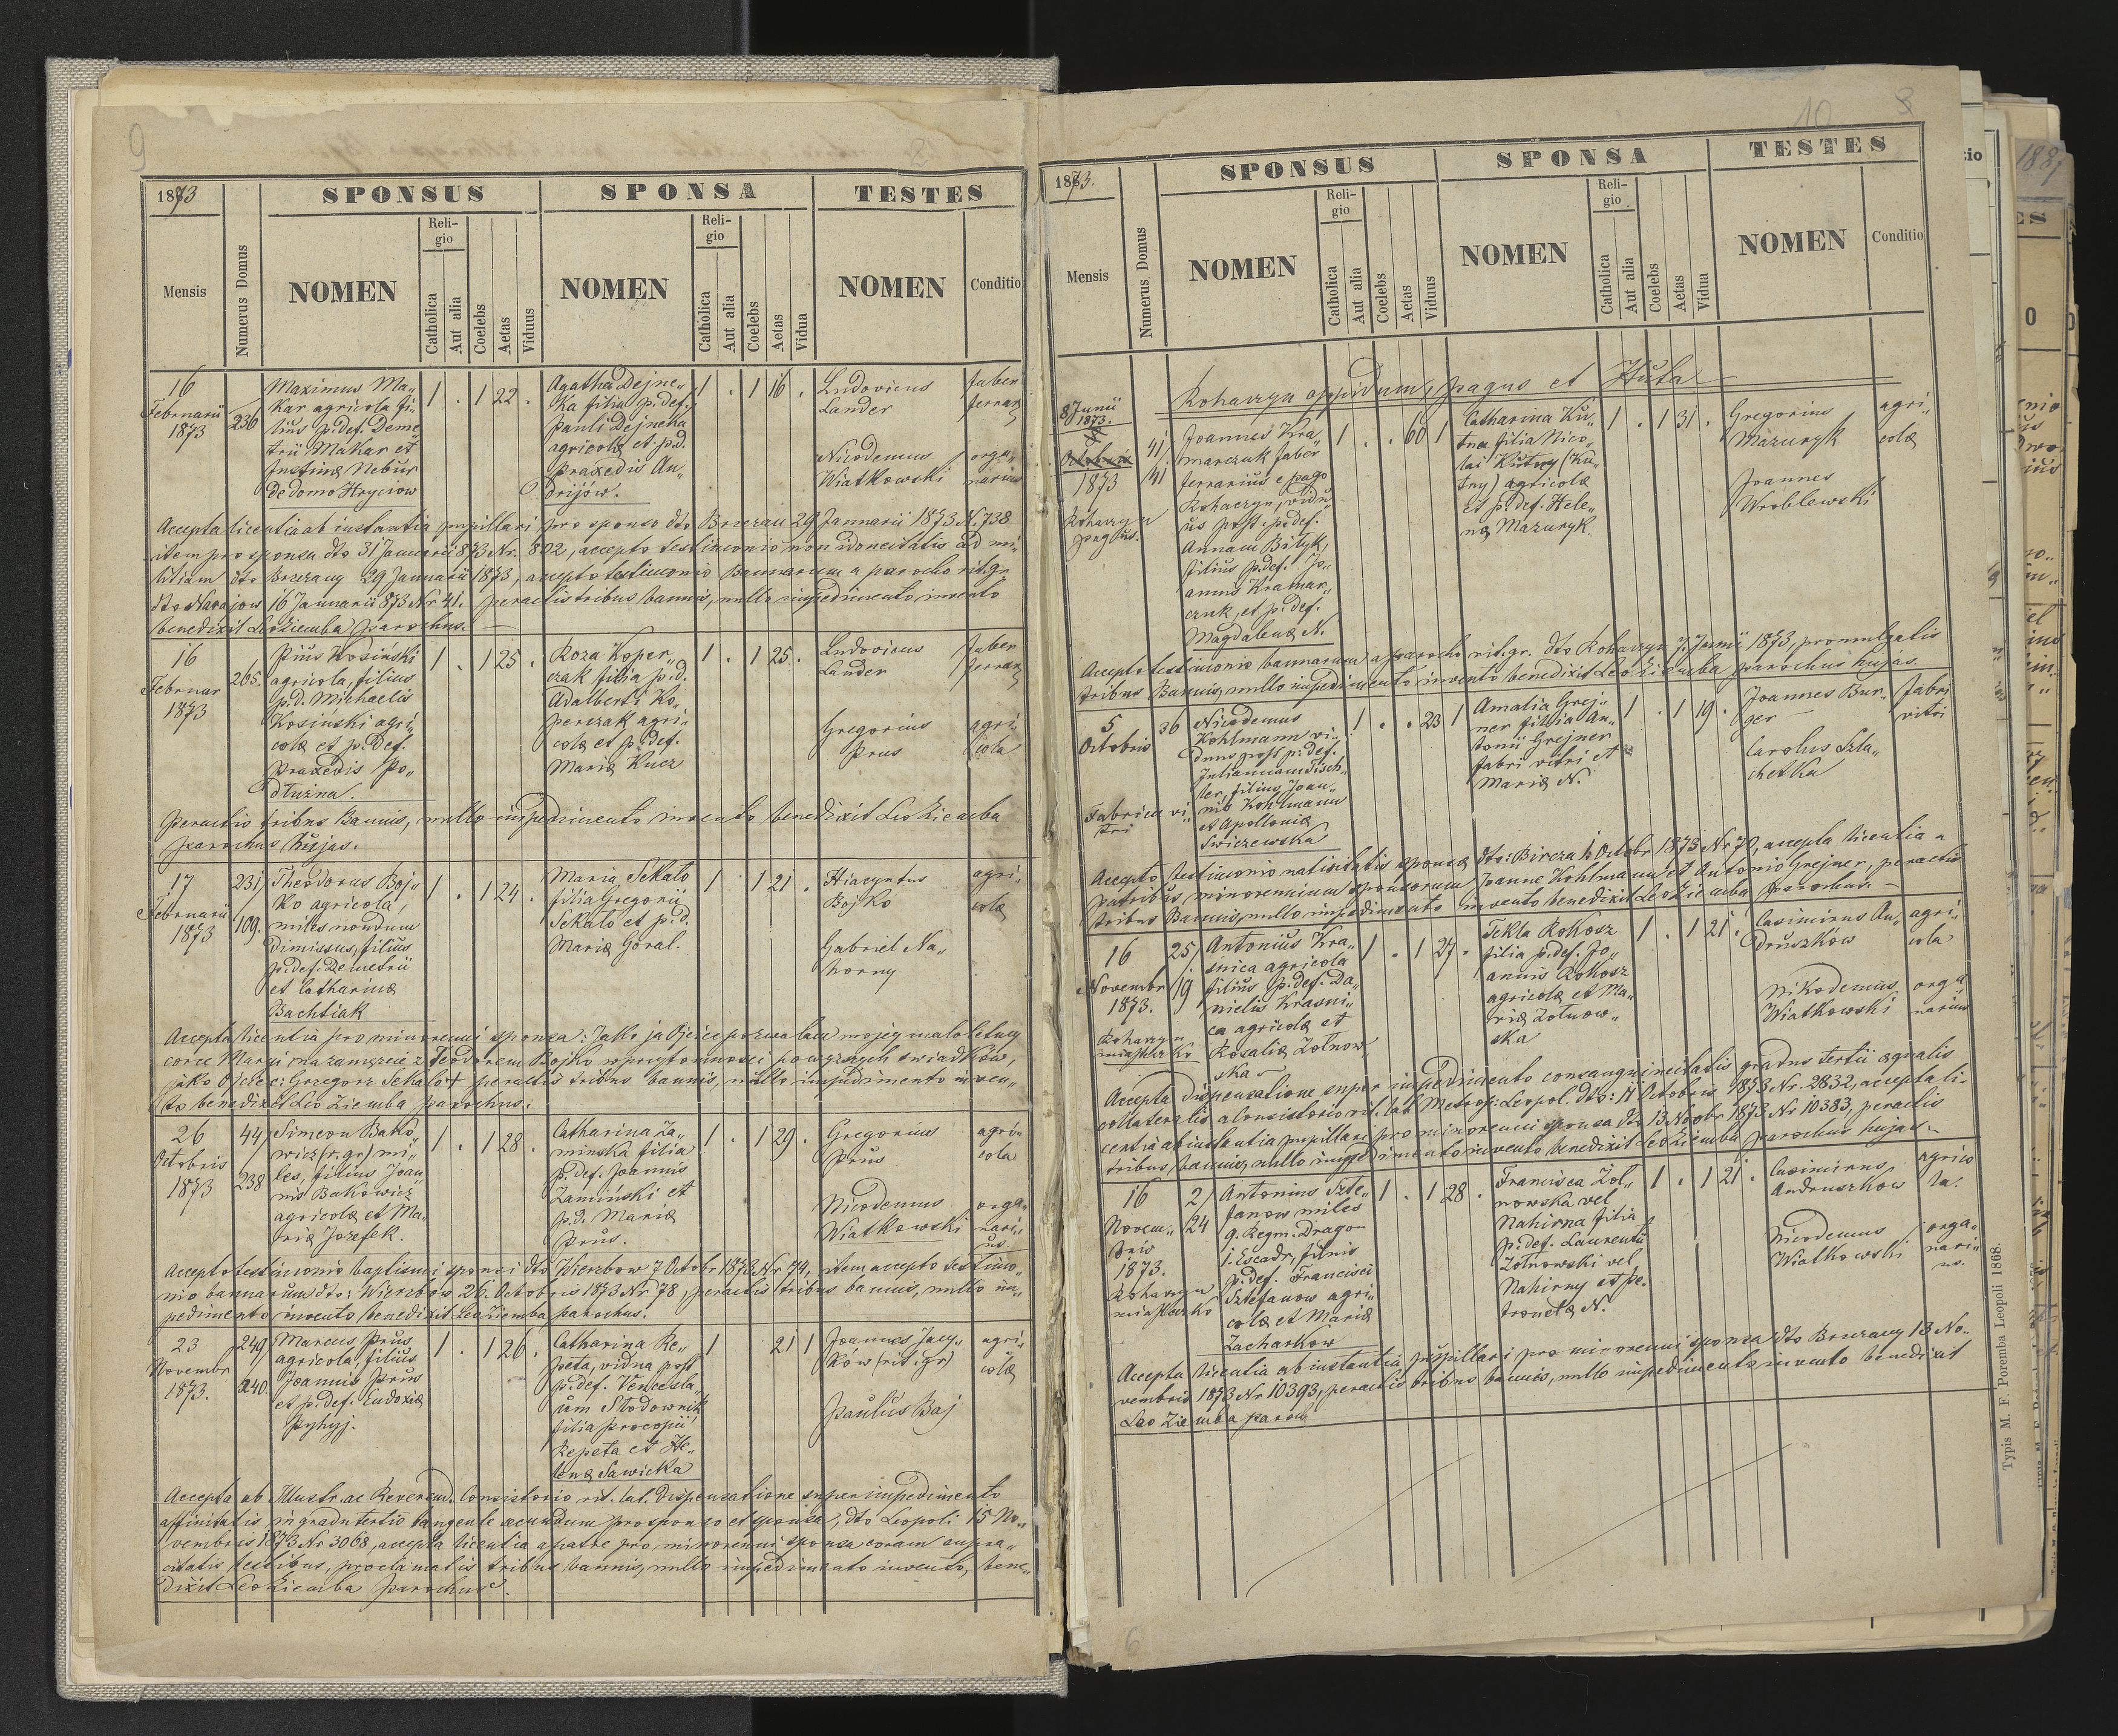 9
1873
SPONSUS
SPONSA
TESTES
Mensis
Numerus Domus
NOMEN
Religio
Catholica
Aut alia
Coelebs
Aetas
Viduus
NOMEN
Religio
Catholica
Aut alia
Coelebs
Aetas
Vidua
NOMEN
Conditio
16
Februarii
1873
236
Maximus Ma„
kar agricola fi„
lius p. def. Deme
trii Makar et
Justinæ Nebur
de domo Hryciow
1 . 1 22 .
Agatha Dejne„
ka filia p. def.
Pauli Dejneka
agricolæ et p. d.
Praxedis An„
drijów.
1 . 1 16 .
Ludovicus
Lander
faber
ferrar
Nicodemus
Wiatkowski
orga„
narius
Accepta licentia ab instantia pupillari pro sponso dto Brzezan 29 Jannarii 1873 N. 738
item pro sponsa dto 31 Januarii 873 Nr. 802, accepto testimonio non idoneitatis ad mi„
litiam dto Brzezany 29 Januarii 1873, accepto testimonio Bannarum a parocho rit. gr.
dto Narajow 16 Januarii 873 Nr 41. peractis tribus bannis, nullo impedimento invento
benedixit Leo Ziemba parochus.
16
Februar
1873
265.
Pius Kosiński
agricola, filius
p. d. Michaelis
Kosiński agri„
colæ et p. def.
Praxedis Po„
dłużna.
1 . 1 25 .
Roza Koper„
czak filia p. d.
Adalberti Ko„
perczak agri„
colæ et p. def.
Mariæ Kucz
1 . 1 25 .
Ludovicus
Lander
faber
ferrar
Gregorius
Prus
agri„
cola
Peractis tribus Bannis, nullo impedimento invento benedixit Leo Ziemba
parochus hujas.
17
Februarii
1873
231/
109.
Theodorus Boj„
ko agricola,
miles nondum
dimissus, filius
p. def. Demetrii
et Catharinæ
Bachtiak
1 . 1 24 .
Maria Sekało
filia Gregorii
Sekało et p. d.
Mariæ Goral.
1 . 1 21 .
Hiacyntus
Bojko
agri„
colæ
Gabriel Na„
horny
Accepta licentia pro minorenni sponsa: Jako ja Ojciec pozwalam mojej małoletniej
corce Maryi na zamęzcie z Teodorem Bojko w przytomności powyższych swiadków,
jako Ojciec: Grzegorz Sekało + peractis tribus bannis, nullo impedimento inven„
to benedixit Leo Ziemba parochus.
26
Octobris
1873
44/
238
Simeon Bako„
wicz (r. gr) mi„
les, filius Joan„
nis Bakowicz
agricolæ et Ma„
riæ Jozefek.
1 . 1 28 .
Catharina Za„
minska filia
p. def. Joannis
Zamiński et
p. d. Mariæ
Prus.
1 . 1 29 .
Gregorius
Prus
agri„
cola
Nicodemus
Wiatkowski
orga„
nari„
us.
Accepto testimonio baptismi sponsi dto Wierzbow 7 Octobr 1873 Nr 74, item accepto testimo„
nio bannarum dto: Wierzbów 26. Octobris 1873 Nr 78, peractis tribus bannis, nullo im„
pedimento invento benedixit Leo Ziemba parochus.
23
Novembr
1873.
249/
240.
Marcus Prus
agricola, filius
Joannis Prus
et p. def. Eudoxiæ
Pyhyj.
1 . 1 26 .
Catharina Re„
peta, vidua post
p. def. Vencesla„
um Słodownik
filia Procopii
Repeta et He„
lenæ Sawicka
1 21 1
Joannes Jacy„
ków (rit. gr)
agri„
colæ
Paulus Baj
Accepta ab Illustr. ac Reverend. Consistorio rit. lat. dispensatione super impedimento
affinitatis in gradu tertio tangente secundum pro sponso et sponsa, dto Leopoli 15 No„
vembris 1873 Nr 3068, accepta licentia a patre pro minorenni sponsa coram supra„
citatis testibus, proclamatis tribus bannis, nullo impedimento invento, bene„
dixit Leo Ziemba parochus.
10
1873.
SPONSUS
SPONSA
TESTES
Mensis
Numerus Domus
NOMEN
Religio
Catholica
Aut alia
Coelebs
Aetas
Viduus
NOMEN
Religio
Catholica
Aut alia
Coelebs
Aetas
Vidua
NOMEN
Conditio
Rohaczyn oppidum, pagus et Huta
8 Junii
1873.
Octobris
1873
Rohaczyn
pagus.
41/
41
Joannes Kra„
marczuk faber
ferrarius e pago
Rohaczyn, vidu„
us post p. def.
Annam Bityk,
filius p. def. Jo„
annis Kramar„
czuk, et p. def.
Magdalenæ N.
1 . . 60 1
Catharina Ku„
tna filia Nico„
lai Kutny (Ku„
tny) agricolæ
et p. def. Hele„
næ Mazuryk.
1 . 1 31 .
Gregorius
Mazuryk
agri„
colæ
Joannes
Wroblewski
Accepto testimonio bannarum a parocho rit. gr. dto Rohaczyn 7 Junii 1873, promulgatis
tribus Bannis, nullo impedimento invento benedixit Leo Ziemba parochus hujas.
5
Octobris
Fabrica vi„
tri
36
Nicodemus
Kohlmann vi„
duus post p. def.
Juliannam Tisch„
ler, filius Joan„
nis Kohlmann
et Apolloniæ
Swiczewska
1 . . 23 1
Amalia Grej„
ner filia An„
tonii Grejner
fabri vitri et
Mariæ N.
1 . 1 19 .
Joannes Bur„
ger
fabri
vitri
Carolus Szla„
chetka
Accepto testimonio nativitatis sponsæ dto: Bircza 1 Octobr 1873 Nr 70, accepta licentia a
patribus minorennium sponsorum Joanne Kohlmann et Antonio Grejner, peractis
tribus Bannis, nullo impedimento invento benedixit Leo Ziemba parochus.
16
Novembr
1873.
Rohaczyn
miasteczko
25/
19
Antonius Kra„
śnica agricola
filius p. def. Da„
nielis Krasni„
ca agricolæ et
Rosaliæ Zołnow„
ska
1 . 1 27 .
Tekla Rokosz
filia p. def. Jo„
annis Rokosz
agricolæ et Ma„
riæ Zołnow„
ska
1 . 1 21 .
Casimirus An„
druszków
agri„
cola
Nikodemus
Wiatkowski
orga„
narius
Accepta dispensatione super impedimento consanguineitatis gradus tertii æqualis
collateralis a Consistorio rit. lat. Metrop: Leopol. dto: 11 Octobris 1873 Nr. 2832, accepta li„
centia ab instantia pupillari pro minorenni sponsa dto 13 Novbr 1873 Nr 10383, peractis
tribus bannis, nullo impedimento invento benedixit Leo Ziemba parochus hujas.
16
Novem„
bris
1873.
Rohaczyn
miasteczko
2/
24
Antonius Szte„
fanow miles
9. Regm. Dragon
1. Escadr., filius
p. def. Francisci
Sztefanow agri„
colæ et Mariæ
Zacharkow
1 . 1 28 .
Francisca Zoł„
nowska vel
Nahirna filia
p. def. Laurentii
Zołnowski vel
Nahirny et Pe„
tronelæ N.
1 . 1 21 .
Casimirus
Andruszkow
agrico
la.
Nicodemus
Wiatkowski
orga„
nari„
us.
Accepta licentia ab instantia pupillari pro minorenni sponsa dto Brzezany 13 No„
vembris 1873 Nr 10393, peractis tribus bannis, nullo impedimento invento benedixit
Leo Ziemba paroch
Typis M. F. Poremba Leopoli 1868.
6